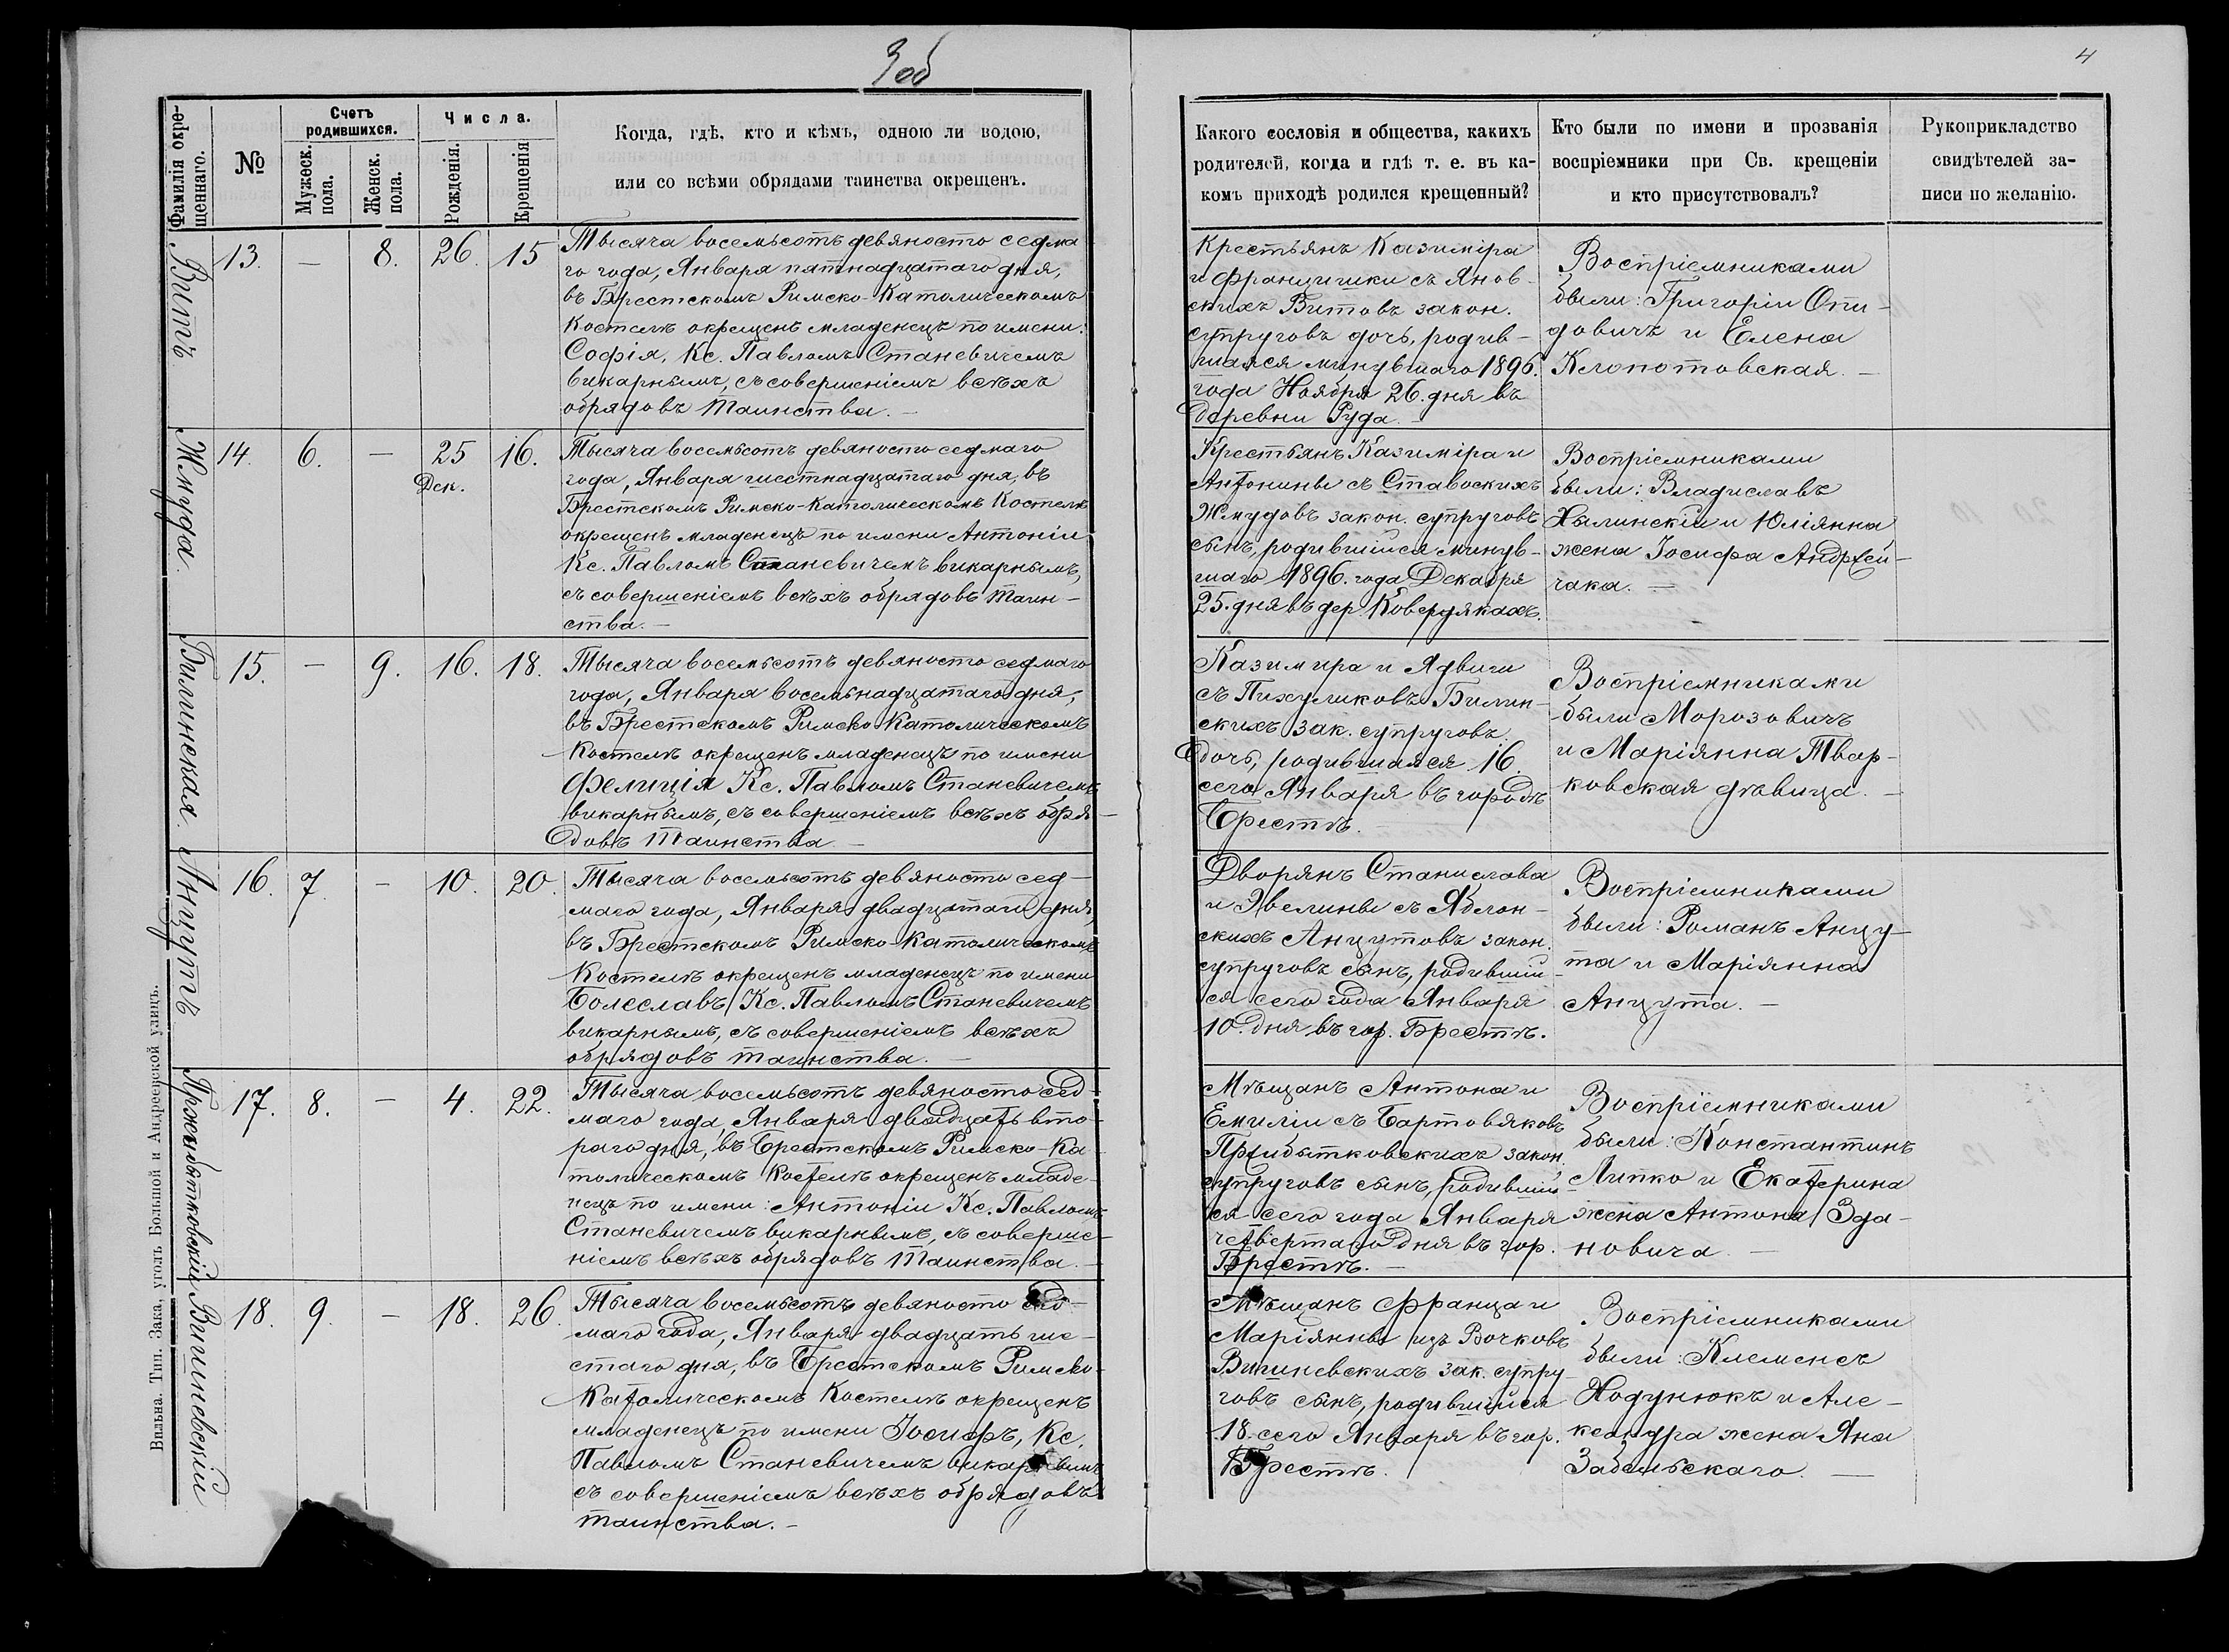 3об
4
Фамилія окре-
щеннаго.
№
Счетъ
родившихся.
Мужеск.
пола.
Женск.
пола.
Числа.
Рожденія.
Крещенія
Когда, гдѣ, кто и кѣмъ, одною ли водою,
или со всѣми обрядами таинства окрещенъ.
Какого сословія и общества, какихъ
родителей, когда и гдѣ т. е. въ ка-
комъ приходѣ родился крещенный?
Кто были по имени и прозванія
воспріемники при Св. крещеніи
и кто присутствовалъ?
Рукоприкладство
свидѣтелей за-
писи по желанію.
Витъ
13. — 8. 26. 15
Тысяча восемьсотъ девяносто седма
го года, Января пятнадцатаго дня,
въ Брестскомъ Римско-Католическомъ
Костелѣ окрещенъ младенецъ по имени:
Софія, Кс. Павломъ Станевичемъ
викарнымъ, съ совершеніемъ всѣхъ
обрядовъ Таинства. —
Крестьянъ Казиміра
и Францишки съ Янов-
скихъ Витовъ закон.
супруговъ дочь, родив-
шаяся минувшаго 1896.
года Ноября 26. дня въ
деревни Руда. —
Воспріемниками
были: Григорій Опи-
довичъ и Елена
Клопотовская. —
Жмуда.
14. 6. — 25 16.
Дек.
Тысяча восемьсотъ девяносто седмаго
года, Января шестнадцатаго дня, въ
Брестскомъ Римско-Католическомъ Костелѣ
окрещенъ младенецъ по имени Антоній
Кс. Павломъ Станевичемъ викарнымъ,
съ совершеніемъ всѣхъ обрядовъ Таин-
ства. —
Крестьянъ Казиміра и
Антонины съ Ставскихъ
Жмудовъ закон. супруговъ
сынъ, родившійся минув-
шаго 1896. года Декабря
25. дня въ дер. Ковердякахъ.
Воспріемниками
были: Владиславъ
Хылинскій и Юліянна
жена Іосифа Андрей-
чака. —
Билинская.
15. — 9. 16. 18.
Тысяча восемьсотъ девяносто седмаго
года, Января восемьнадцатаго дня,
въ Брестскомъ Римско-Католическомъ
Костелѣ окрещенъ младенецъ по имени
Фелиція Кс. Павломъ Станевичемъ
викарнымъ, съ совершеніемъ всѣхъ обря-
довъ Таинства. —
Казимира и Ядвиги
съ Пихуликовъ Билин-
скихъ зак. супруговъ
дочь, родившаяся 16.
сего Января въ городѣ
Брестѣ. —
Воспріемниками
были Морозовичъ
и Маріянна Твар-
ковская дѣвица. —
Анцутъ
16. 7. — 10. 20.
Тысяча восемьсотъ девяносто сед-
маго года, Января двадцатаго дня,
въ Брестскомъ Римско-Католическомъ
Костелѣ окрещенъ младенецъ по имени
Болеславъ Кс. Павломъ Станевичемъ
викарнымъ, съ совершеніемъ всѣхъ
обрядовъ таинства. —
Дворянъ Станислава
и Эвелины съ Яблон-
скихъ Анцутовъ закон.
супруговъ сынъ, родившій-
ся сего года Января
10. дня въ гор. Брестѣ.
Воспріемниками
были: Романъ Анцу-
та и Маріянна
Анцута. —
Пржибытковскій
17. 8. — 4. 22.
Тысяча восемьсотъ девяносто сед-
маго года, Января двадцать вто-
раго дня, въ Брестскомъ Римско-Ка-
толическомъ Костелѣ окрещенъ младе-
нецъ по имени: Антоній Кс. Павломъ
Станевичемъ викарнымъ, съ соверше-
ніемъ всѣхъ обрядовъ Таинства. —
Мѣщанъ Антона и
Емиліи съ Бартовяковъ
Пржибытковскихъ закон.
супруговъ сынъ, родившій-
ся сего года Января
четвертаго дня въ гор.
Брестѣ. —
Воспріемниками
были: Константинъ
Липко и Екатерина
жена Антона Зда-
новича. —
Вишневскій
18. 9. — 18. 26.
Тысяча восемьсотъ девяносто сед-
маго года, Января двадцать ше-
стаго дня, въ Брестскомъ Римско-
Католическомъ Костелѣ окрещенъ
младенецъ по имени Іосифъ, Кс.
Павломъ Станевичемъ викарнымъ
съ совершеніемъ всѣхъ обрядовъ
таинства. —
Мѣщанъ Франца и
Маріянны изъ Вочковъ
Вишневскихъ зак. супру-
говъ сынъ, родившійся
18. сего Января въ гор.
Брестѣ.
Воспріемниками
были: Клеменсъ
Ходунюкъ и Але-
ксандра жена Яна
Забельскаго. —
Вильна. Тип. Зака, уголъ Большой и Андреевской улицъ.